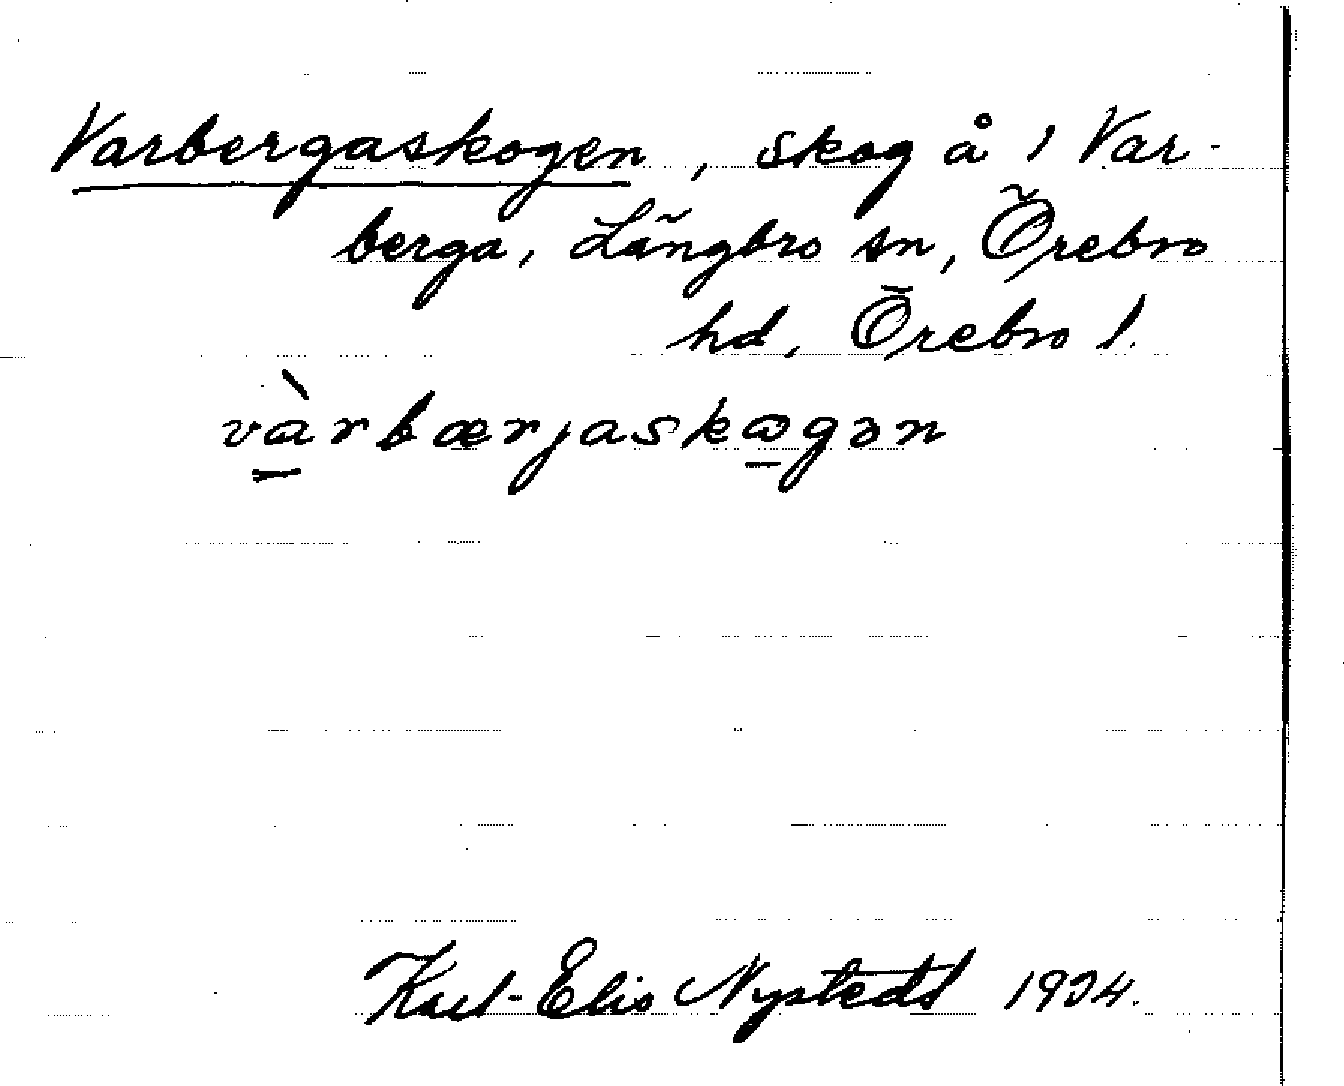 Varbergaskogen, skog å 1 Var-
berga, Längbro sn, Örebro
hd, Örebro l.
vàrbærjaskɷgən
Karl-Elis Nystedt 1934.